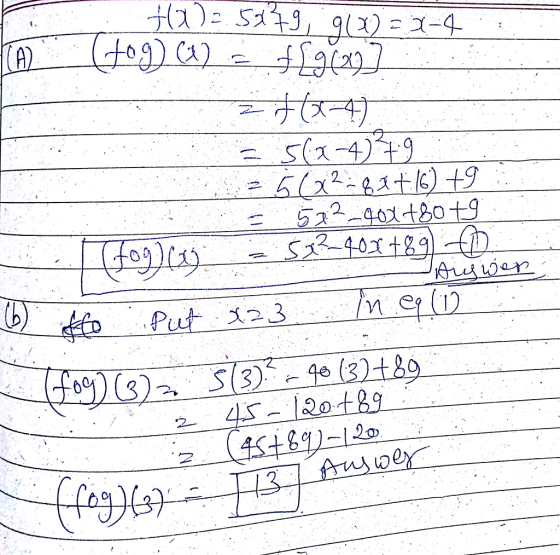 f(x) = 5x²+9, g(x) = x-4
(A) (fog)(x) = f[g(x)]
= f(x-4)
= 5(x-4)²+9
= 5(x²-8x+16)+9
= 5x²-40x+80+9
(fog)(x) = 5x²-40x+89 -①
Answer
(b) Put x=3 in eq(1)
(fog)(3) = 5(3)²-40(3)+89
= 45-120+89
= (45+89)-120
(fog)(3) = 13 Answer